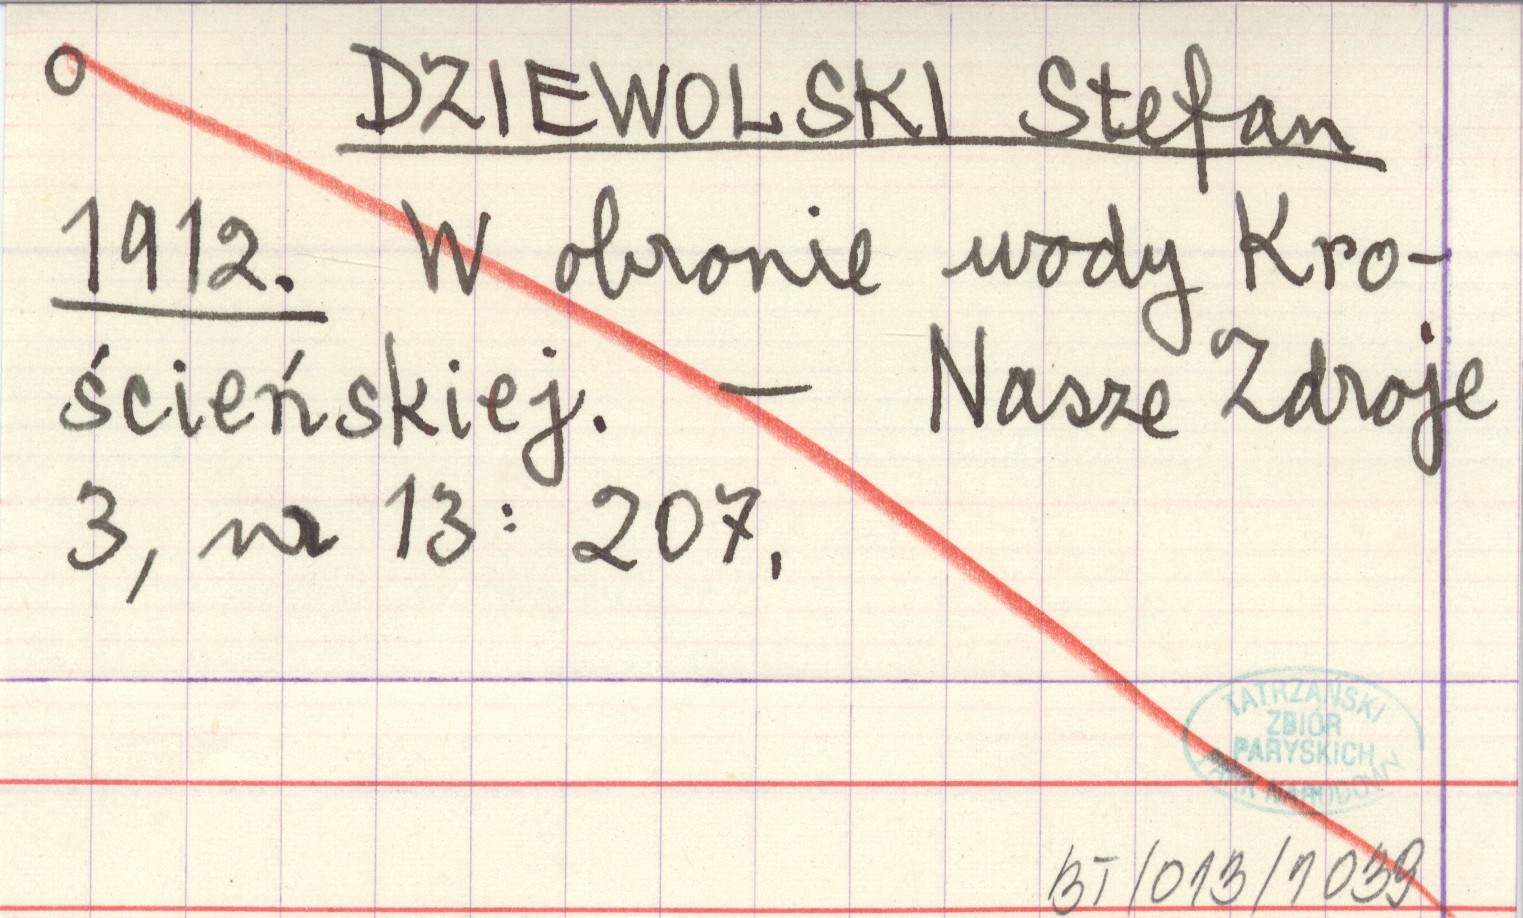 O DZIEWOLSKI Stefan
1912. W obronie wody Kro-
ścieńskiej. – Nasze Zdroje
3, nr 13: 207.
TATRZAŃSKI
ZBIÓR
PARYSKICH
PARK NARODOWY
BT/013/1039